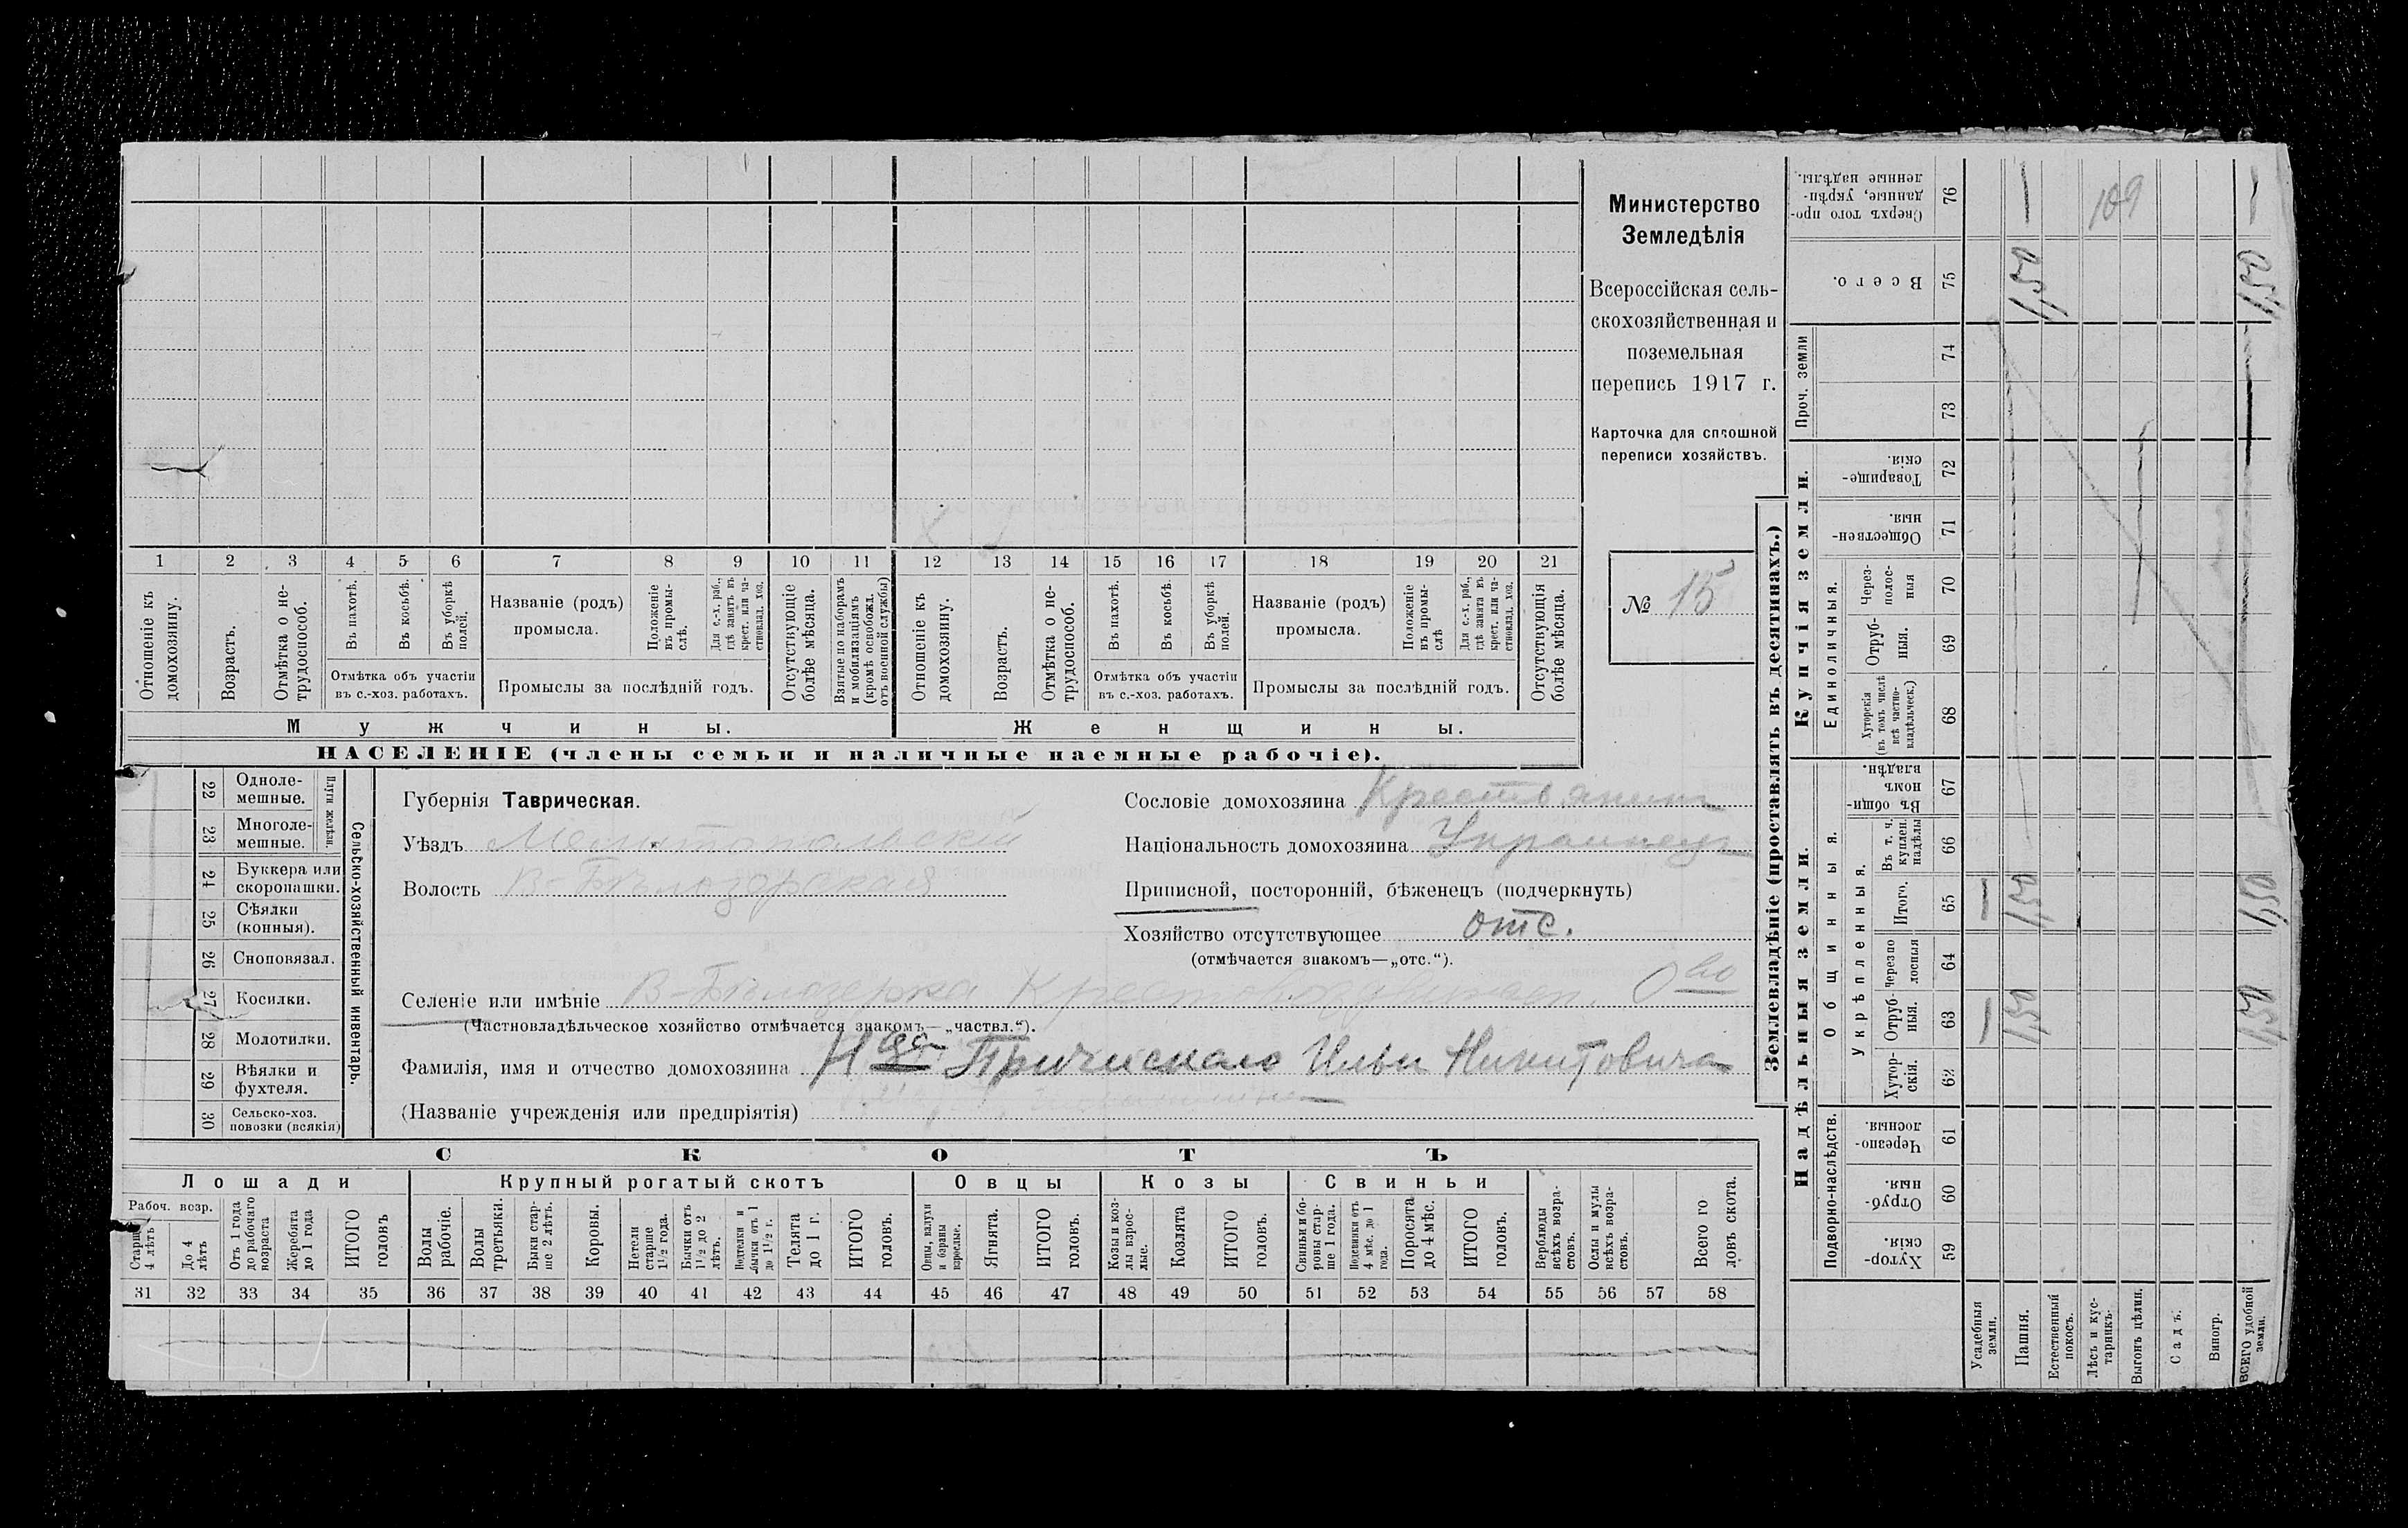 Министерство
Земледѣлія
Всероссійская сель-
скохозяйственная и
поземельная
перепись 1917 г.
Карточка для сплошной
переписи хозяйствъ.
№ 15
1 2 3 4 5 6 7 8 9 10 11 12 13 14 15 16 17 18 19 20 21
Отношеніе къ домохозяину.
Возрастъ.
Отмѣтка о не-трудоспособ.
Въ пахотѣ.
Въ косьбѣ.
Въ уборкѣ полей.
Отмѣтка объ участіи
въ с.-хоз. работахъ.
Названіе (родъ)
промысла.
Положеніе въ промы-слѣ.
Для с.-х. раб., гдѣ занятъ въ крест. или ча-стновлад. хоз.
Промыслы за послѣдній годъ.
Отсутствующіе болѣе мѣсяца.
Взятые по наборамъ и мобилизаціямъ (кромѣ освобожд. отъ военной службы)
Отношеніе къ домохозяину.
Возрастъ.
Отмѣтка о не-трудоспособ.
Въ пахотѣ.
Въ косьбѣ.
Въ уборкѣ полей.
Отмѣтка объ участіи
въ с.-хоз. работахъ.
Названіе (родъ)
промысла.
Положеніе въ промы-слѣ
Для с.-х. раб., гдѣ занята въ крест. или ча-стновлад. хоз.
Промыслы за послѣдній годъ.
Отсутствующія болѣе мѣсяца.
Мужчины.
Женщины.
НАСЕЛЕНІЕ (члены семьи и наличные наемные рабочіе).
22 Одноле-мешные.
23 Многоле-мешные.
Плуги желѣзн.
24 Буккера или скоропашки.
25 Сѣялки (конныя).
26 Сноповязал.
27 Косилки.
28 Молотилки.
29 Вѣялки и фухтеля.
30 Сельско-хоз. повозки (всякія)
Сельско-хозяйственный инвентарь.
Губернія Таврическая.
Уѣздъ Мелитопольскій
Волость В-Бѣлозерская
Сословіе домохозяина Крестьянинъ
Національность домохозяина Украинецъ
Приписной, посторонній, бѣженецъ (подчеркнуть)
Хозяйство отсутствующее отс.
(отмѣчается знакомъ—„отс.“).
Селеніе или имѣніе В-Бѣлозерка
(Частновладѣльческое хозяйство отмѣчается знакомъ—„частвл.“).
Фамилія, имя и отчество домохозяина Ильи Никитовича
(Названіе учрежденія или предпріятія)
СКОТЪ
Лошади
Крупный рогатый скотъ
Овцы
Козы
Свиньи
Рабоч. возр.
Старше 4 лѣтъ
До 4 лѣтъ
Отъ 1 года до рабочаго возраста
Жеребята до 1 года
ИТОГО головъ
Волы рабочіе.
Волы третьяки.
Быки стар-ше 2 лѣтъ.
Коровы.
Нетели старше 1½ года.
Бычки отъ 1½ до 2 лѣтъ.
Нетелки и бычки отъ 1 до 1½ г.
Телята до 1 г.
ИТОГО головъ.
Овцы, валухи и бараны взрослые.
Ягнята.
ИТОГО головъ.
Козы и коз-лы взрос-лые.
Козлята
ИТОГО головъ.
Свиньи и бо-ровы стар-ше 1 года.
Подсвинки отъ 4 мѣс. до 1 года.
Поросята до 4 мѣс.
ИТОГО головъ.
Верблюды всѣхъ возра-стовъ.
Ослы и мулы всѣхъ возра-стовъ.
Всего го ловъ скота.
31 32 33 34 35 36 37 38 39 40 41 42 43 44 45 46 47 48 49 50 51 52 53 54 55 56 57 58
Землевладѣніе (проставлять въ десятинахъ.)
Надѣльныя земли.
Купчія земли.
Проч. земли
Подворно-наслѣдств.
Общинныя.
Укрѣпленныя.
Единоличныя.
Хутор-скія. 59
Отруб-ныя. 60
Черезпо-лосныя. 61
Хутор-скія. 62
Отруб-ныя. 63
Черезпо лосныя 64
Итого. 65
Въ т. ч. куплен. надѣлы 66
Въ общи-номъ владѣн. 67
Хуторскія (въ томъ числѣ всѣ частно-владѣльческ.) 68
Отруб-ныя. 69
Через-полос-ныя 70
Обществен-ныя. 71
Товарище-скія. 72
73
74
Всего. 75
Сверхъ того про-данные, укрѣп-ленные надѣлы. 76
109
Усадебныя земли.
Пашня.
Естественный покосъ.
Лѣсъ и кус-тарникъ.
Выгонъ цѣлин.
Садъ.
Виногр.
ВСЕГО удобной земли.